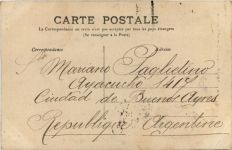 CARTE POSTALE
La Correspondance au recto n'est pas acceptée par tous les pays étrangers
(Se renseigner à la Poste)
Correspondance Adresse
Mariano Pagliettino
Ayacucho 1417
Ciudad de Buenos Ayres
Republique Argentine